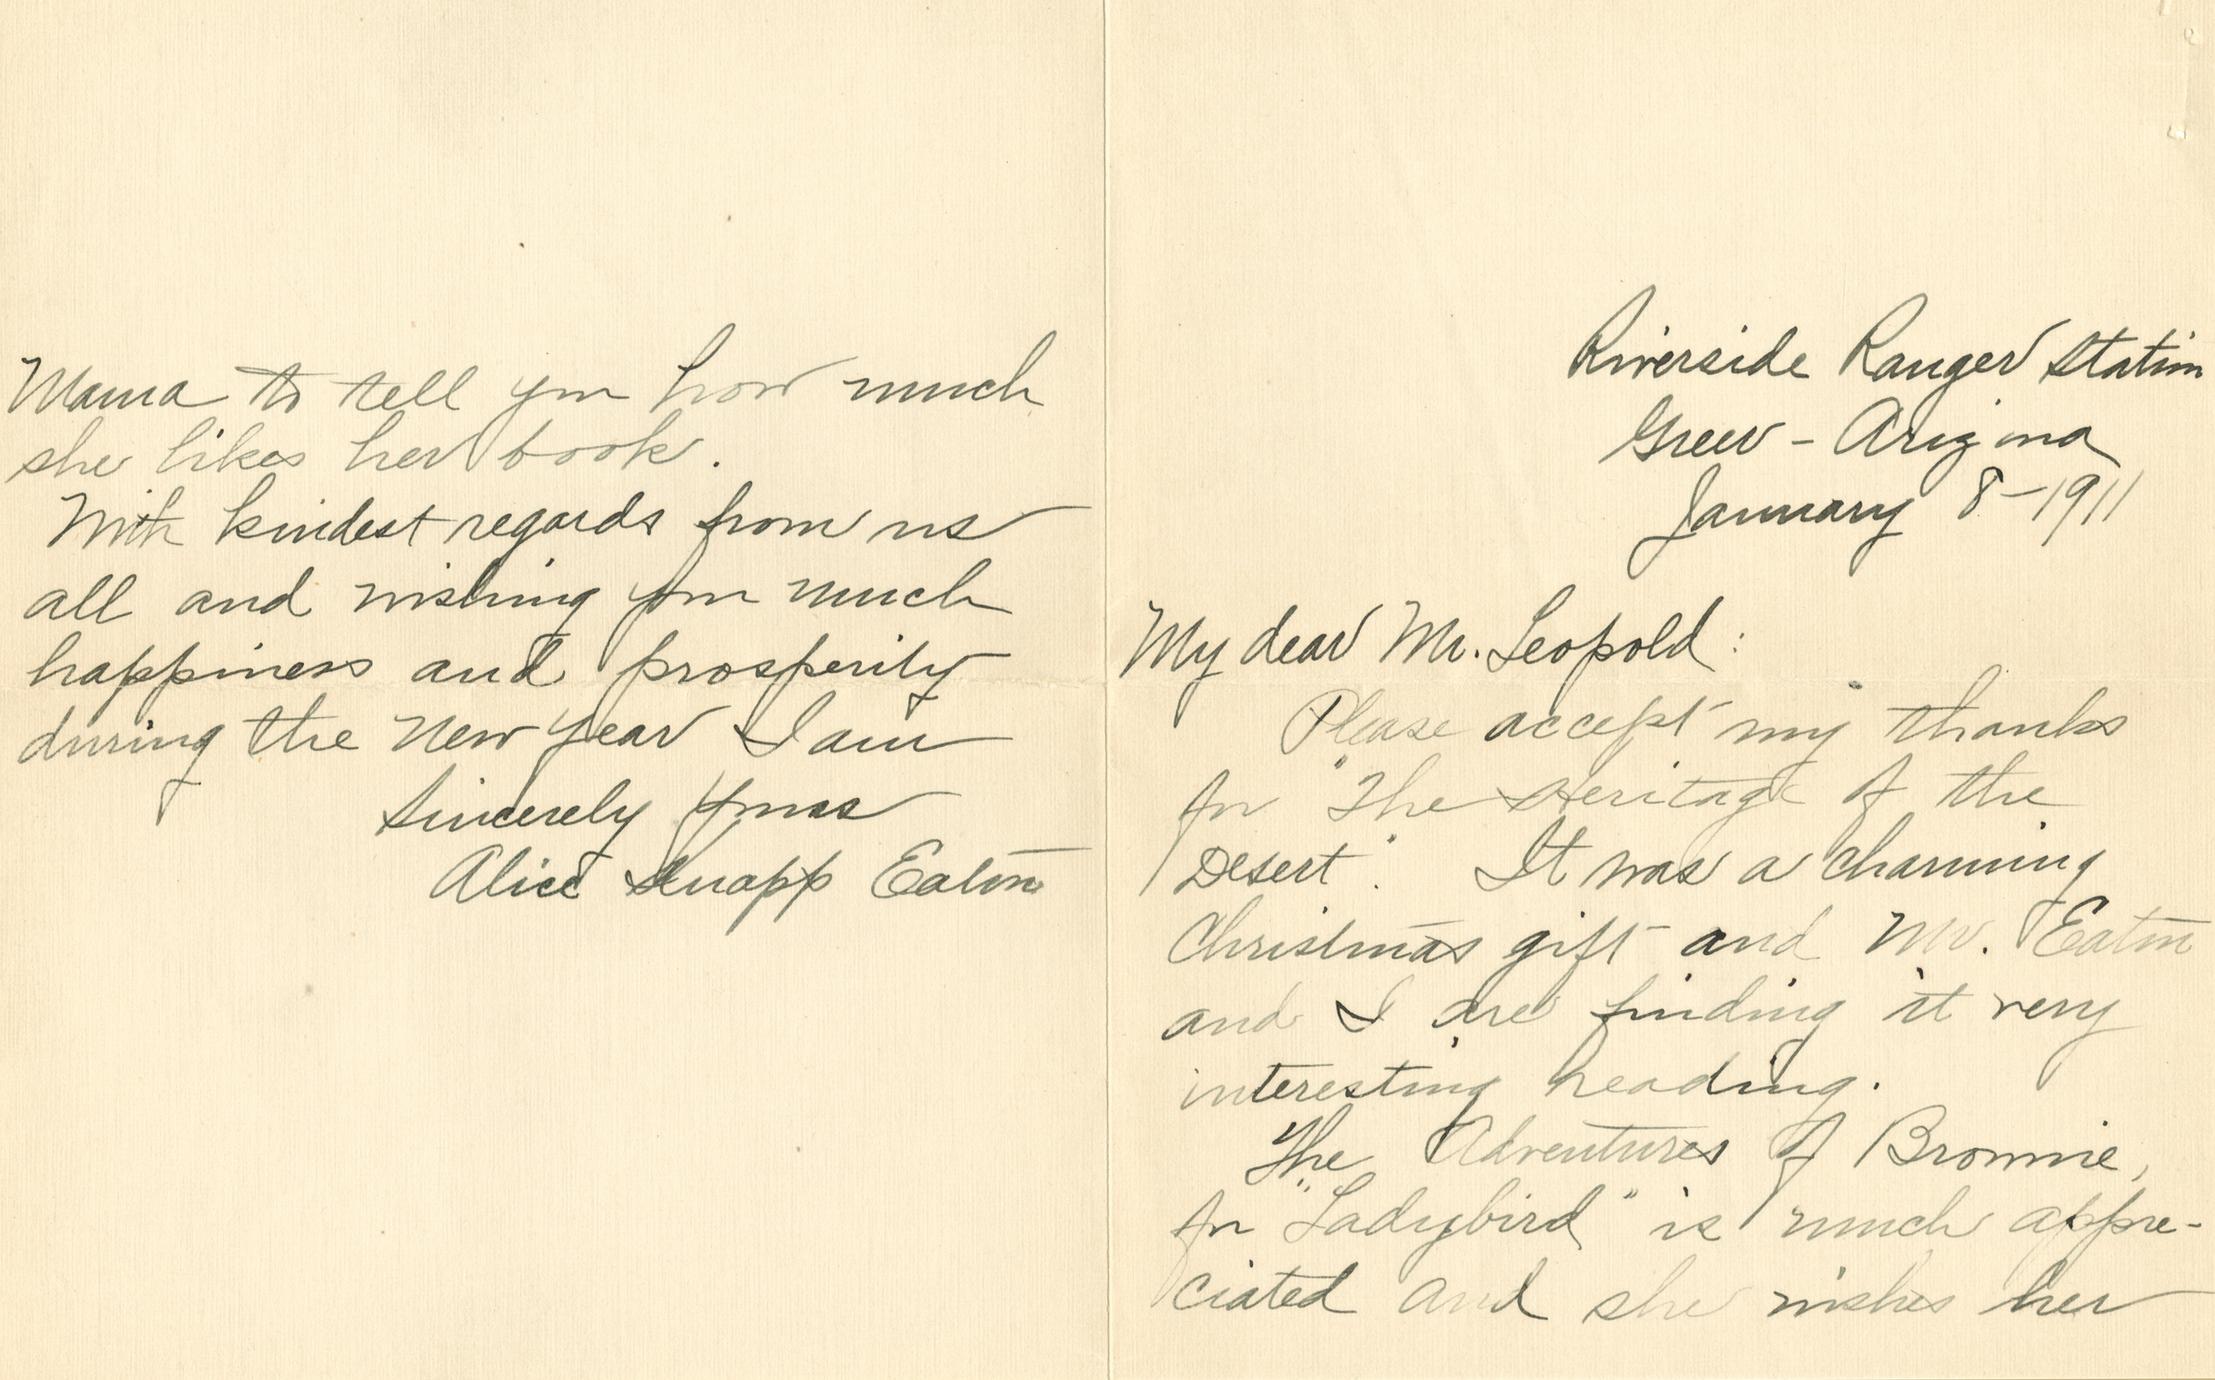 Riverside Ranger Station
Greer - Arizona
January 8-1911
My dear Mr. Leopold:
Please accept my thanks
for "The Heritage of the
Desert". It was a charming
Christmas gift and Mr. Eaton
and I are finding it very
interesting reading.
The Adventures of Brownie,
for "Ladybird" is much appre-
ciated and she wishes her
Mama to tell you how much
she likes her book.
With kindest regards from us
all and wishing you much
happiness and prosperity
during the New Year I am
Sincerely yours
Alice Knapp Eaton